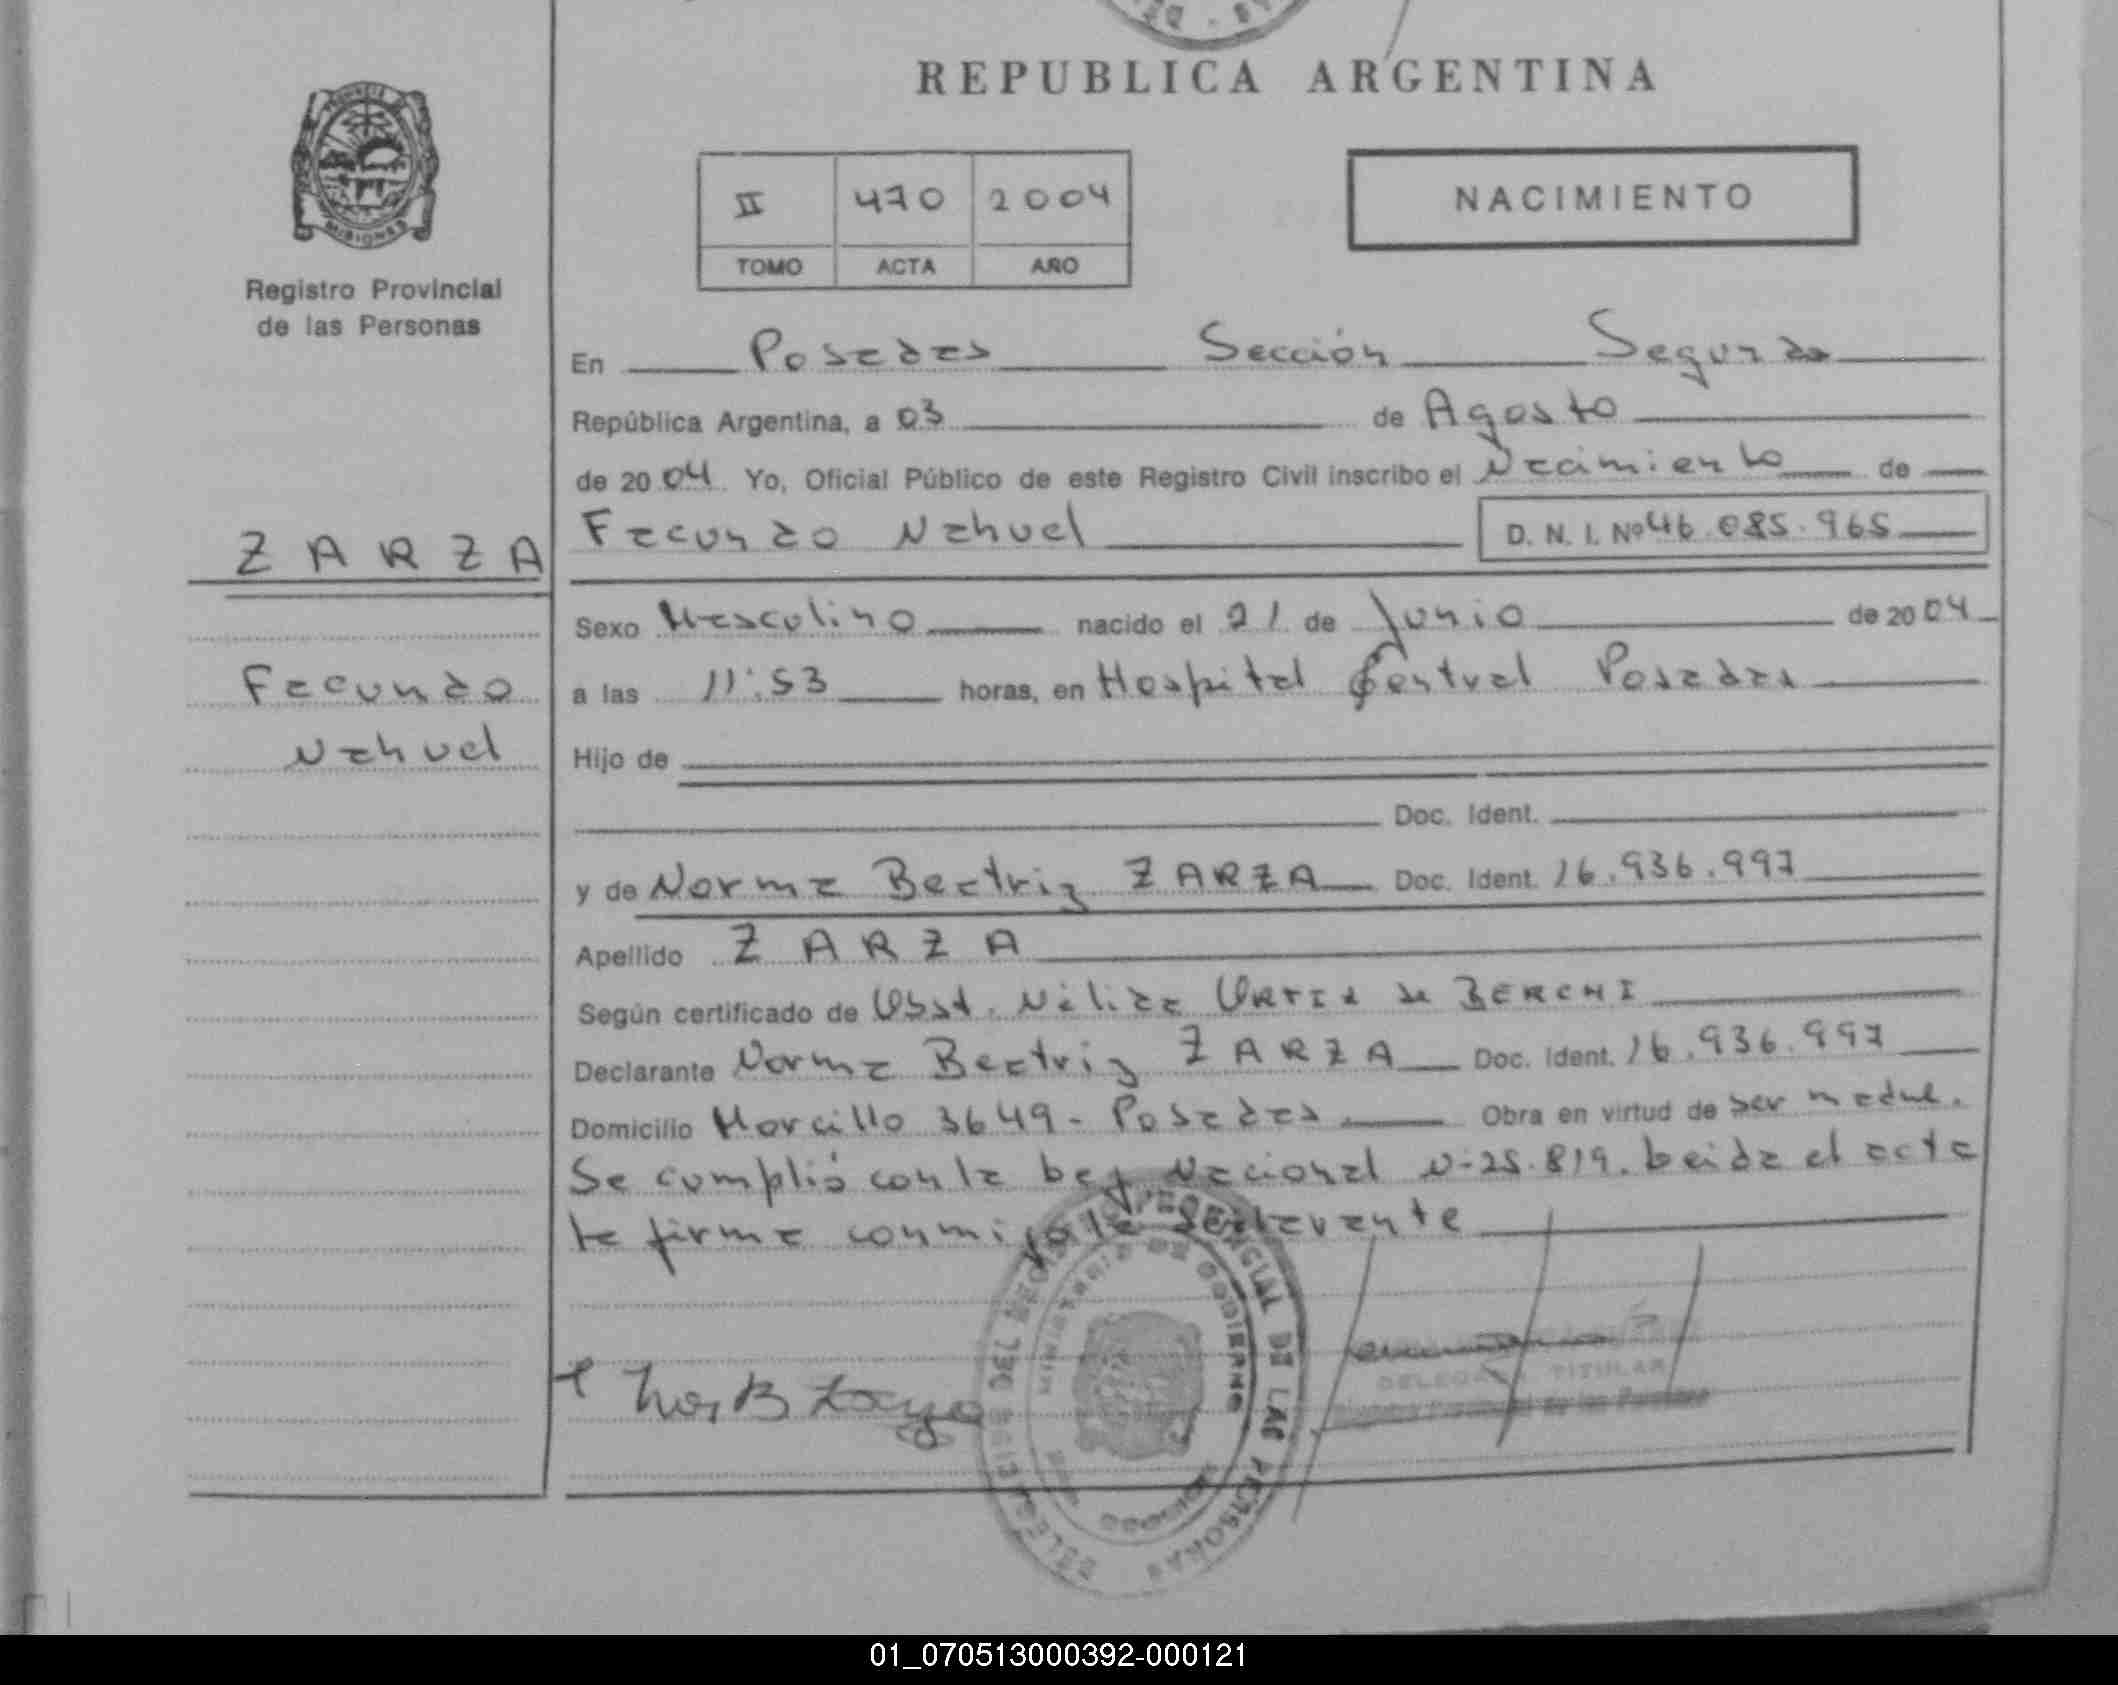 REPUBLICA ARGENTINA
PROVINCIA DE
MISIONES
Registro Provincial
de las Personas
II 470 2004
TOMO ACTA AÑO
NACIMIENTO
En Posadas Sección Segunda
República Argentina, a 03 de Agosto
de 2004 Yo, Oficial Público de este Registro Civil inscribo el Nacimiento de
ZARZA
Facundo Nahuel D. N. I. Nº 46.085.965
Sexo Masculino nacido el 21 de Junio de 2004
Facundo
Nahuel
a las 11:53 horas, en Hospital Central Posadas
Hijo de
Doc. Ident.
y de Norma Beatriz ZARZA Doc. Ident. 16.936.997
Apellido ZARZA
Según certificado de Obst. Nélida ORTIZ de BERCHI
Declarante Norma Beatriz ZARZA Doc. Ident. 16.936.997
Domicilio Morcillo 3649 - Posadas Obra en virtud de ser madre.
Se cumplió con la Ley Nacional N-25.819. Leida el acta
la firma conmigo la declarante
DE LAS PERSONAS
MINISTERIO DE GOBIERNO
DELEGADA TITULAR
01_070513000392-000121